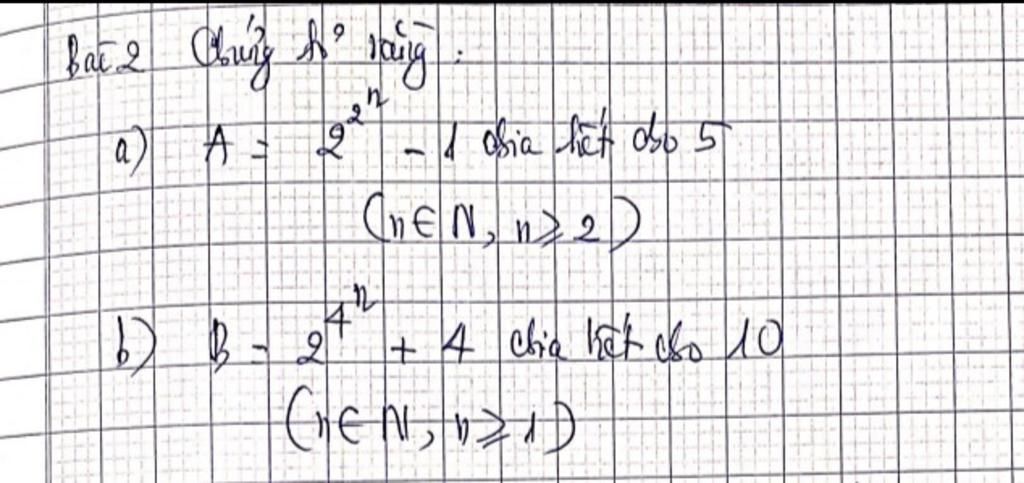 Bài 2 Chứng tỏ rằng :
a) A = 2^{2^n} - 1 chia hết cho 5
(n ∈ N, n ⩾ 2)
b) B = 2^{4^n} + 4 chia hết cho 10
(n ∈ N, n ⩾ 1)